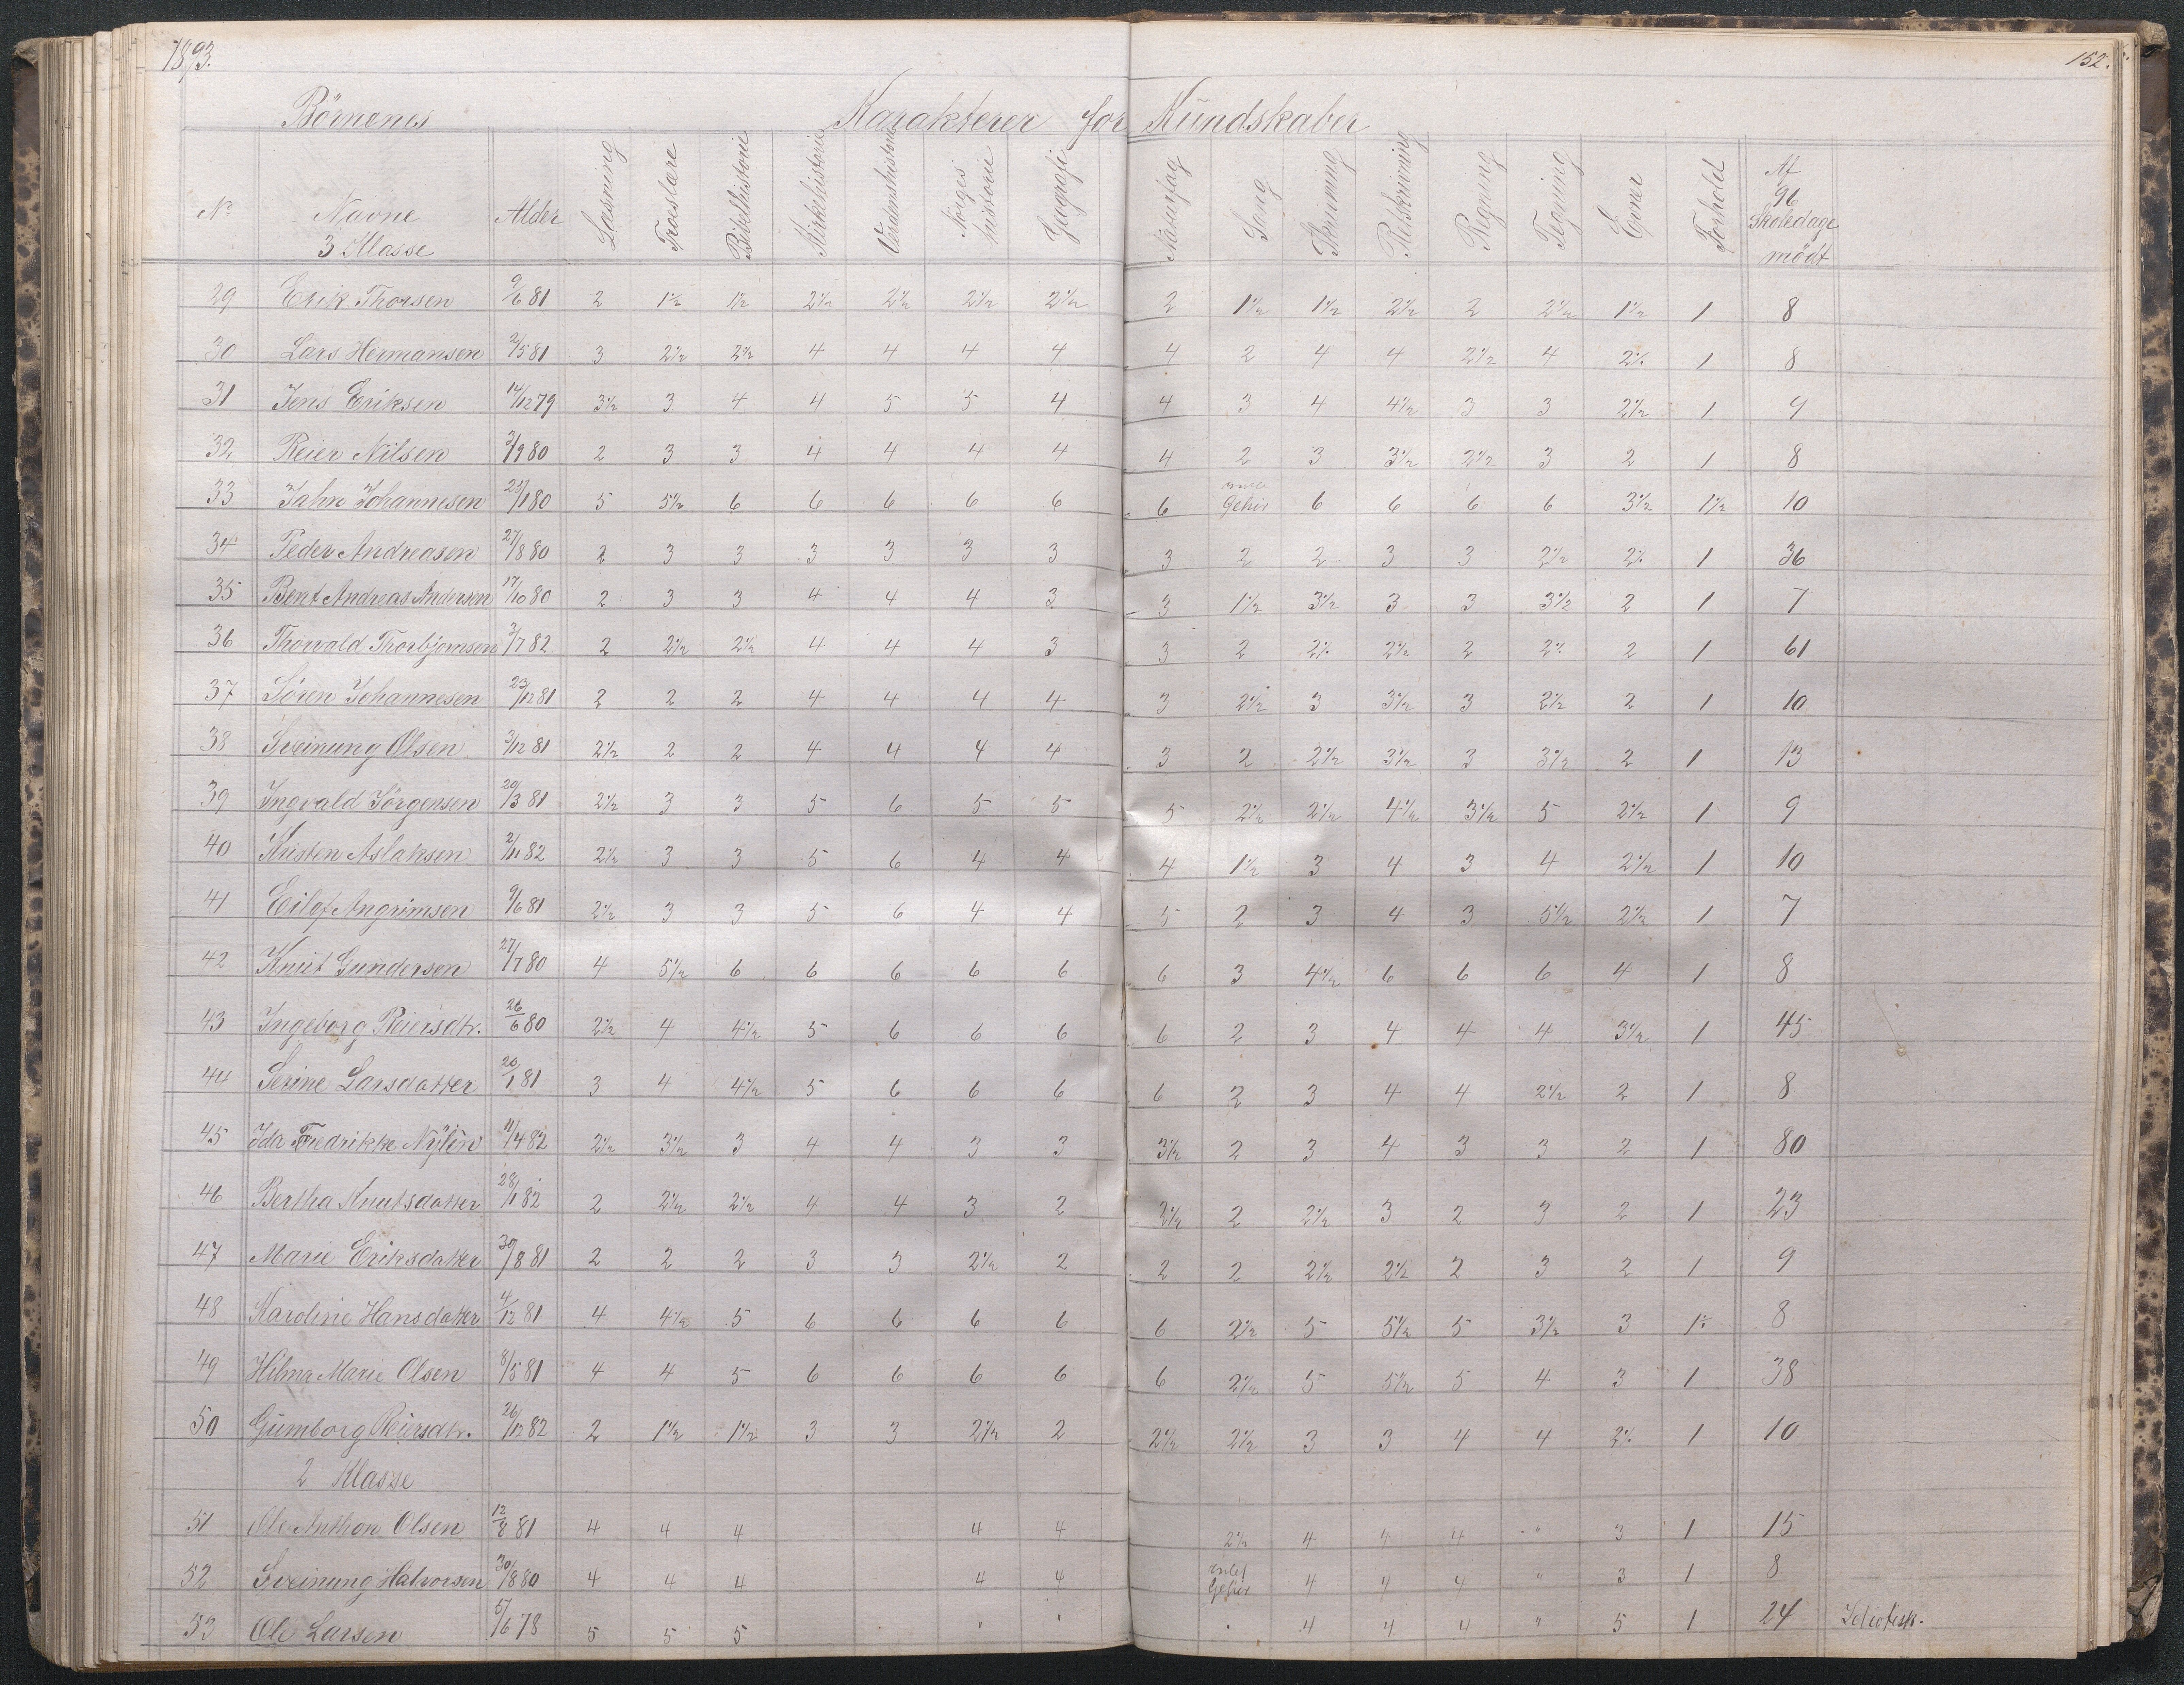 1893.
152.
Börnenes Karakterer for Kundskaber
No Navne 3 Klasse Alder Læsning Troeslære Bibelhistorie Kirkehistorie Verdenshistorie Norges historie Geografi Naturfag Sang Skrivning Retskrivning Regning Tegning Evner Forhold Af 96 Skoledage mödt
29 Erik Thorsen 9/6 81 2 1½ 1½ 2½ 2½ 2½ 2½ 2 1½ 1½ 2½ 2 2½ 1½ 1 8
30 Lars Hermansen 2/5 81 3 2½ 2½ 4 4 4 4 4 2 4 4 2½ 4 2½ 1 8
31 Jens Eriksen 14/12 79 3½ 3 4 4 5 5 4 4 3 4 4½ 3 3 2½ 1 9
32 Reier Nilsen 3/9 80 2 3 3 4 4 4 4 4 2 3 3½ 2½ 3 2 1 8
33 Jahn Johannesen 25/1 80 5 5½ 6 6 6 6 6 6 Gehör 6 6 6 6 3½ 1½ 10
34 Peder Andreasen 27/8 80 2 3 3 3 3 3 3 3 2 2 3 3 2½ 2½ 1 36
35 Bent Andreas Andersen 17/10 80 2 3 3 4 4 4 3 3 1½ 3½ 3 3 3½ 2 1 7
36 Thorvald Thorbjørnsen 3/7 82 2 2½ 2½ 4 4 4 3 3 2 2½ 2½ 2 2½ 2 1 61
37 Sören Johannesen 23/12 81 2 2 2 4 4 4 4 3 2½ 3 3½ 3 2½ 2 1 10
38 Sveinung Olsen 3/12 81 2½ 2 2 4 4 4 4 3 2 2½ 3½ 3 3½ 2 1 13
39 Ingvald Jörgensen 20/3 81 2½ 3 3 5 6 5 5 5 2½ 2½ 4½ 3½ 5 2½ 1 9
40 Kristen Aslaksen 2/11 82 2½ 3 3 5 6 4 4 4 1½ 3 4 3 4 2½ 1 10
41 Eilef Angrimsen 9/6 81 2½ 3 3 5 6 4 4 5 2 3 4 3 5½ 2½ 1 7
42 Knut Gundersen 27/7 80 4 5½ 6 6 6 6 6 6 3 4½ 6 6 6 4 1 8
43 Ingeborg Reiersdtr. 26/6 80 2½ 4 4½ 5 6 6 6 6 2 3 4 4 4 3½ 1 45
44 Serine Larsdatter 20/1 81 3 4 4½ 5 6 6 6 6 2 3 4 4 2½ 2 1 8
45 Ida Fredrikke Nylén 11/4 82 2½ 3½ 3 4 4 3 3 3½ 2 3 4 3 3 2 1 80
46 Bertha Knutsdatter 28/1 82 2 2½ 2½ 4 4 3 2 3½ 2 2½ 3 2 3 2 1 23
47 Marie Eriksdatter 30/8 81 2 2 2 3 3 2½ 2 2 2 2½ 2½ 2 3 2 1 9
48 Karoline Hansdatter 4/12 81 4 4½ 5 6 6 6 6 6 2½ 5 5½ 5 3½ 3 1½ 8
49 Hilma Marie Olsen 8/5 81 4 4 5 6 6 6 6 6 2½ 5 5½ 5 4 3 1 38
50 Gumborg Reiersdtr. 26/12 82 2 1½ 1½ 3 3 2½ 2 2½ 2½ 3 3 4 4 2½ 1 10
2 Klasse
51 Ole Anthon Olsen 12/8 81 4 4 4 4 4 2½ 4 4 4 " 3 1 15
52 Sveinung Halvorsen 30/8 80 4 4 4 4 4 intet Gehör 4 4 4 " 3 1 8
53 Ole Larsen 5/6 78 5 5 5 " " 4 4 4 " 5 1 24 Idiotisk.